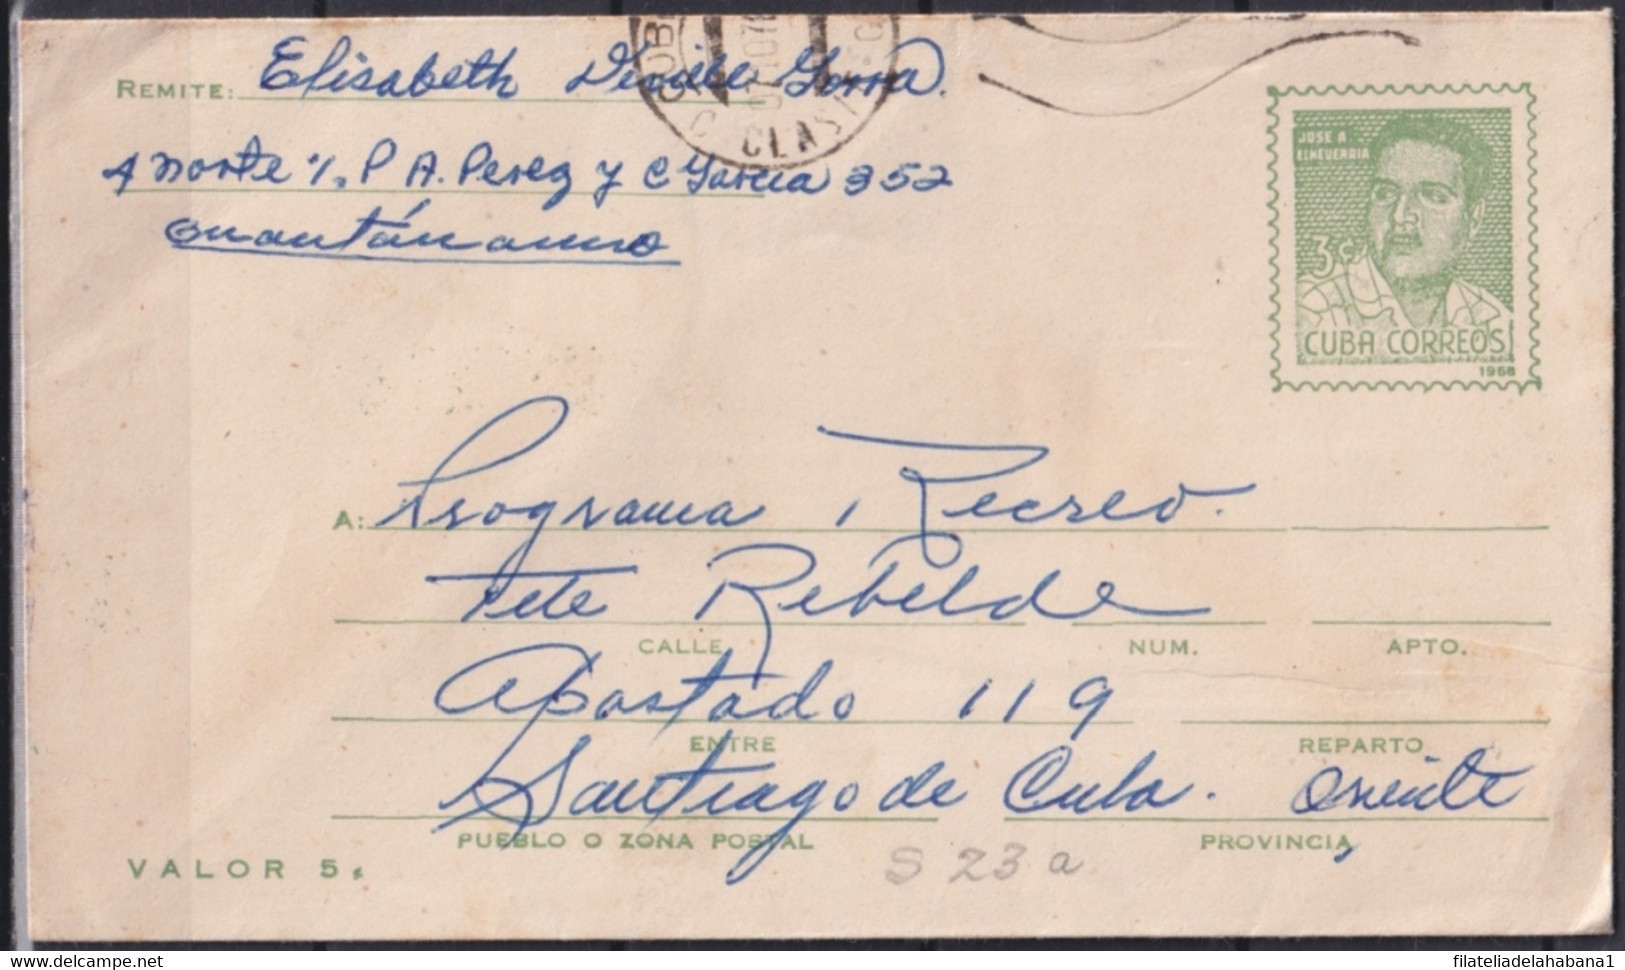 REMITE: Elisabeth
4 norte %. P A. Perez y C Garcia 352
Guantánamo
JOSE A
ECHEVERRIA
3¢
CUBA CORREOS
1968
A: Programa Recreo.
Tele Rebelde
CALLE NUM. APTO.
Apartado 119
ENTRE REPARTO
Santiago de Cuba. Oriente
PUEBLO O ZONA POSTAL PROVINCIA
VALOR 5¢
S 23 a
www.delcampe.net
filateliadelahabana1